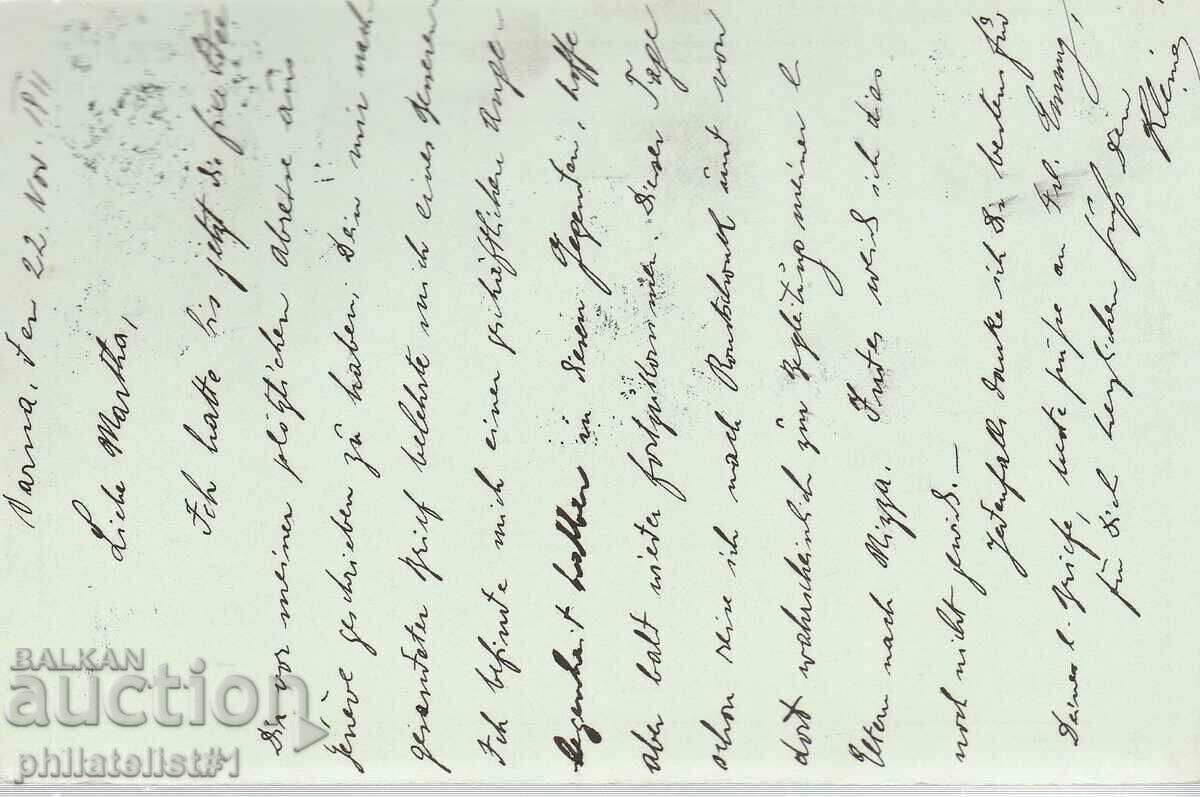 Varna, den 22. Nov. 1911
Liebe Martha,
Ich hatte bis jetzt die
Dir vor meiner plötzlichen Abreise aus
Genève geschrieben zu haben. Dein mir nach
gesandter Brief belehrte mich eines besseren
Ich befinde mich einer geschäftlichen Ange-
legenheit halber in diesen Gegenden, hoffe
aber bald wieder fortzukommen. Dieser Tage
schon reise ich nach Roustschouk und von
dort wahrscheinlich zur Begleitung meiner l
Eltern nach Nizza. Indes weiß ich dies
noch nicht gewiß. —
Jedenfalls danke ich Dir bestens für
Deine l. Briefe, Grüße an Frl. Emmy,
für Dich herzlichen Gruß Dein
BALKAN
auction
philatelist#1